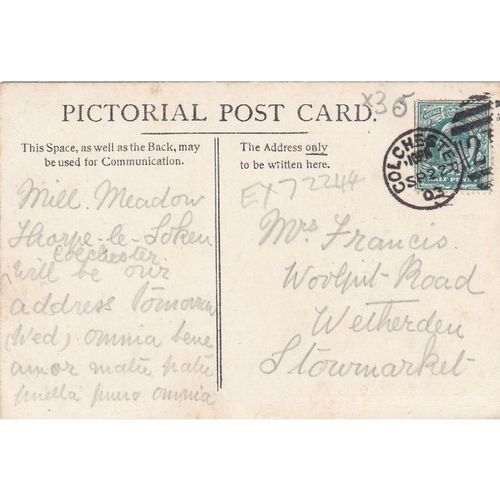 x35
PICTORIAL POST CARD.
This Space, as well as the Back, may
be used for Communication.
The Address only
to be written here.
COLCHESTER
SP 2
03
HALF PENNY
EX72244
Mill Meadow
Thorpe-le-Soken
Colchester
Will be our
address tomorrow
(Wed) omnia bene
amor mater pater
puella omnia
Mrs Francis.
Woolpit Road
Wetherden
Stowmarket